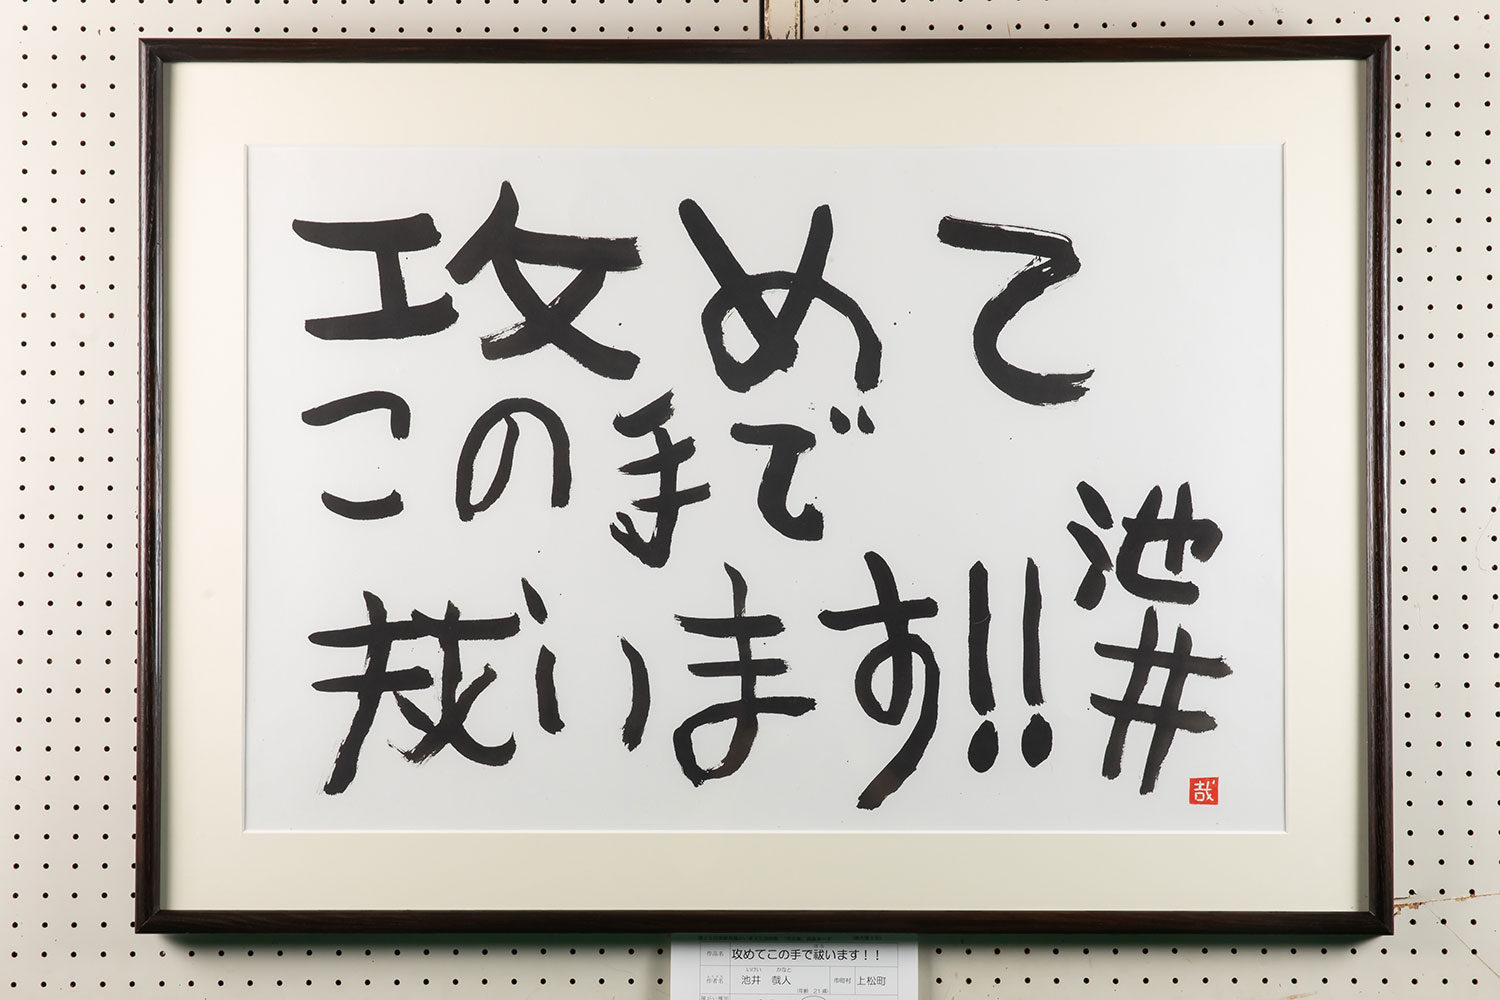 攻めて
この手で
祓います!!
池井
哉
作品名 攻めてこの手で祓います！！
いけい かなと
作者名 池井 哉人 市町村 上松町
(年齢 21歳)